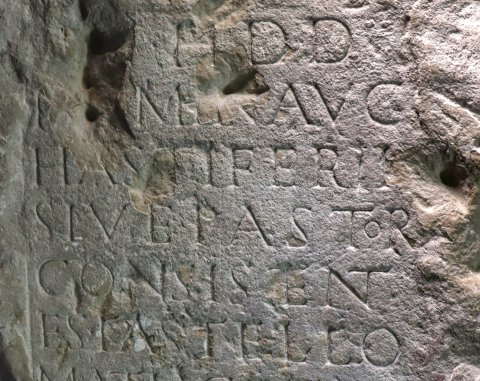 H D D
AVG
HASTIFERII
SIVE PASTOR
CONSISTENT
ES KASTELLO